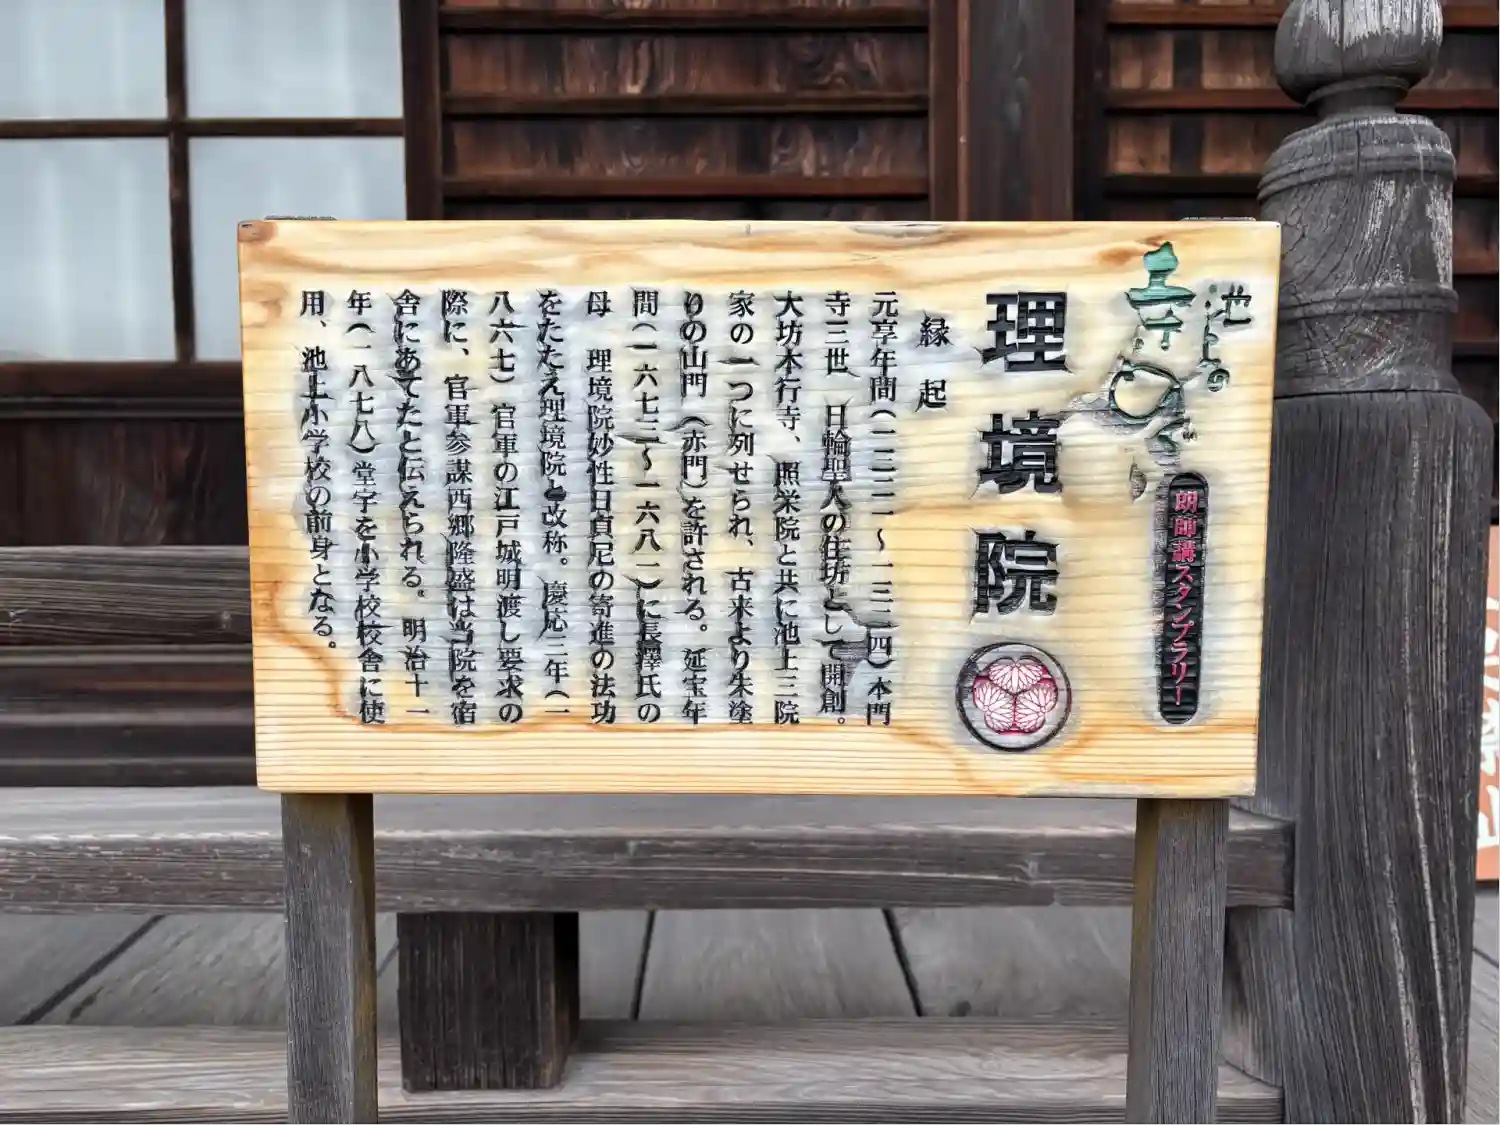 朗師講スタンプラリー
理境院
縁起
元享年間(一三二一〜一三二四)本門
寺三世 日輪聖人の住坊として開創。
大坊本行寺、照栄院と共に池上三院
家の一つに列せられ、古来より朱塗
りの山門(赤門)を許される。延宝年
間(一六七三〜一六八一)に長澤氏の
母 理境院妙性日貞尼の寄進の法功
をたたえ理境院と改称。慶応三年(一
八六七)官軍の江戸城明渡し要求の
際に、官軍参謀西郷隆盛は当院を宿
舎にあてたと伝えられる。明治十一
年(一八七八)堂宇を小学校校舎に使
用、池上小学校の前身となる。